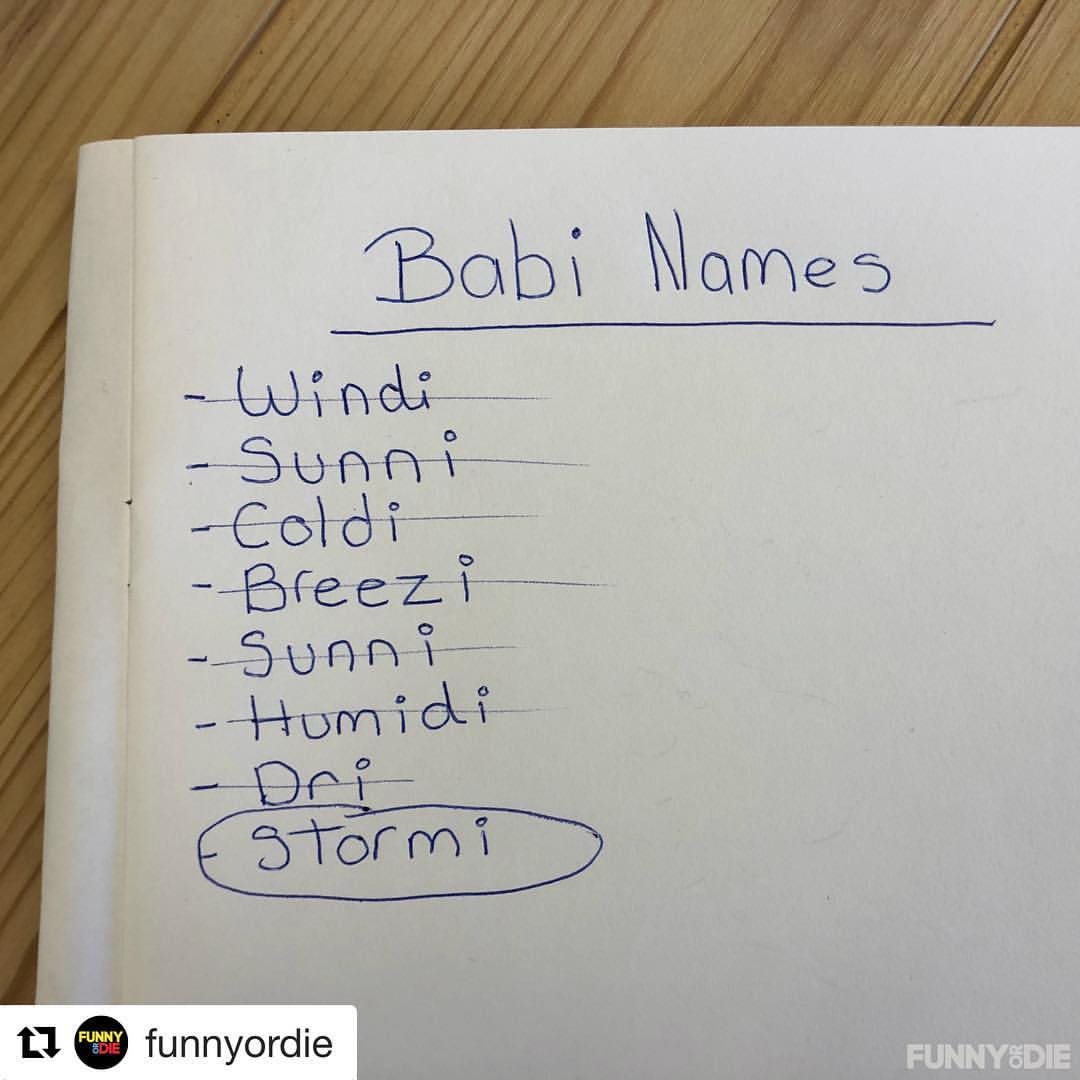 Babi Names
- Windi
- Sunni
- Coldi
- Breezi
- Sunni
- Humidi
- Dri
- Stormi
FUNNY OR DIE funnyordie
FUNNY OR DIE